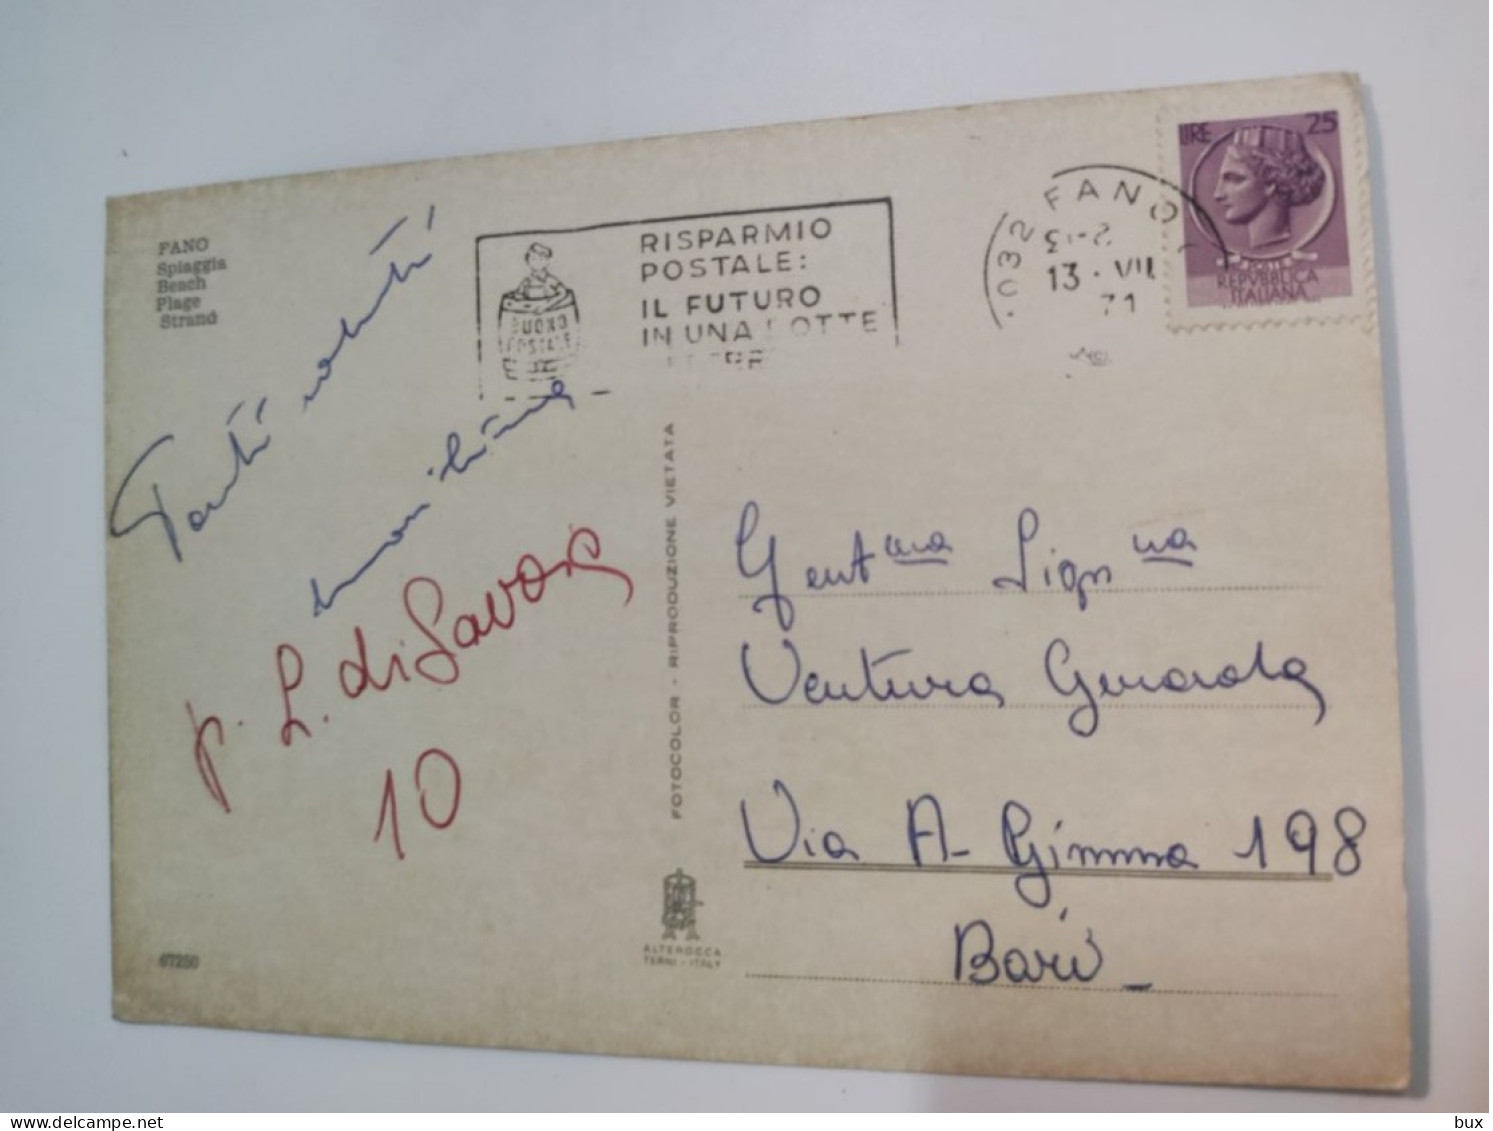 FANO
Spiaggia
Beach
Plage
Strand
RISPARMIO
POSTALE:
IL FUTURO
IN UNA BOTTE
BUONO
POSTALE
61032 FANO
13 · VII
71
LIRE 25
POSTE
REPUBBLICA
ITALIANA
Tanti saluti
p. L. di Savoia
10
FOTOCOLOR - RIPRODUZIONE VIETATA
Gent.ma Sign.na
Ventura Gerarda
Via A- Gimma 198
Bari
ALTEROCCA
TERNI - ITALY
67250
bux
delcampe.net